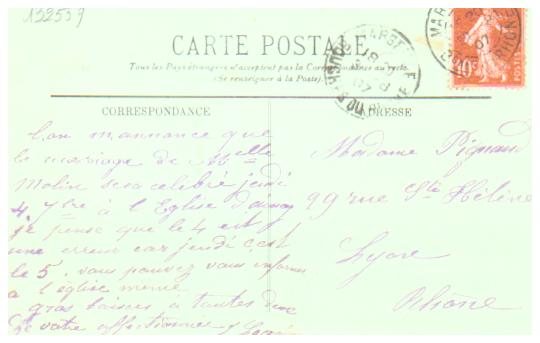 132559
CARTE POSTALE
Tous les Pays étrangers n'acceptent pas la Correspondance au recto.
(Se renseigner à la Poste).
CORRESPONDANCE
ADRESSE
l'on m'annonce que
le mariage de Melle
Molin sera celebré jeudi
4 7bre à l'Eglise d'ainay
je pense que le 4 est
une erreur car jeudi c'est
le 5. vous pouvez vous informer
a l'eglise meme
gros baisers à toutes deux
de votre affectionnée
Madame Pignaud
99 rue Ste Hélène
Lyon
Rhône
10c
POSTES
RHONE